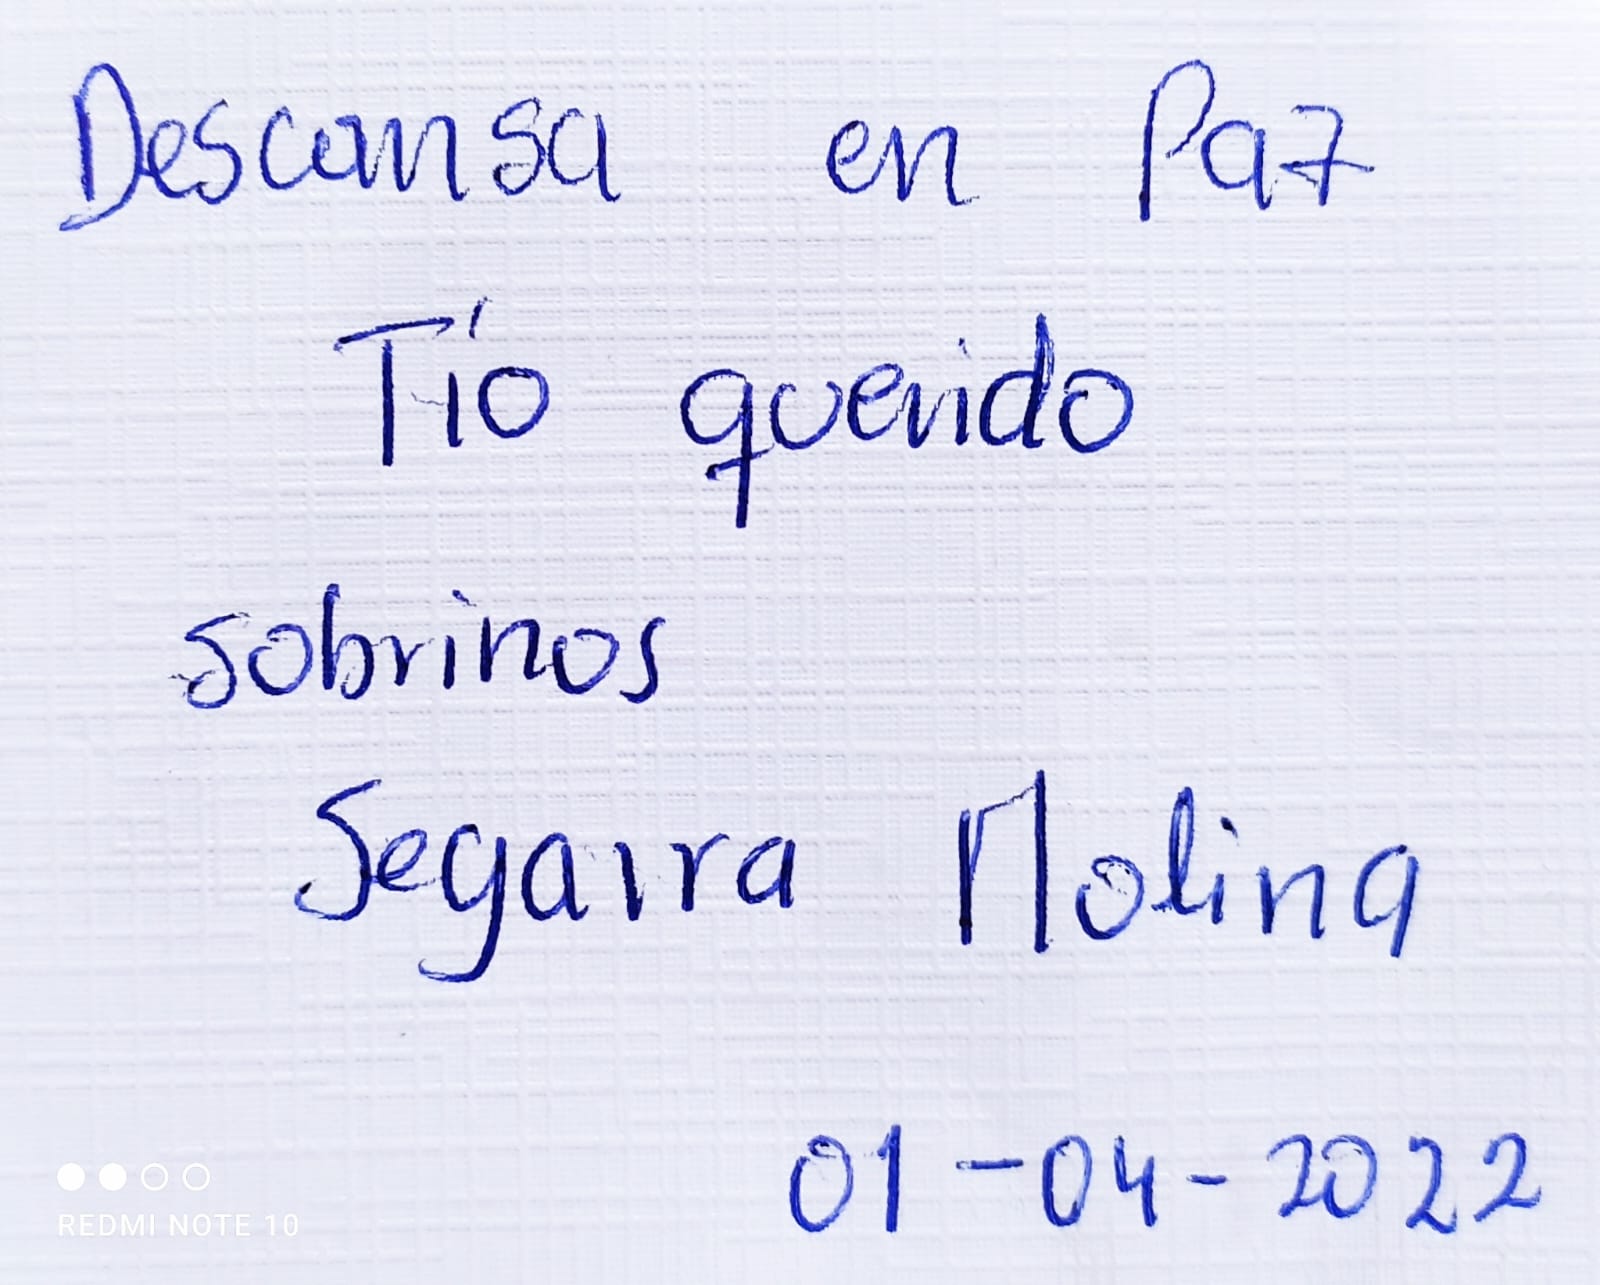 Descansa en Paz
Tío querido
sobrinos
Segarra Molina
01-04-2022
REDMI NOTE 10